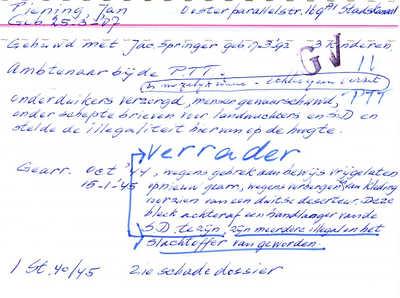 Piening Jan Oosterparallelstr. 169 A1 Stadskanaal
Geb. 25-3-07
Gehuwd met Jac. Springer geb. 1,3,42 3 kinderen.
GV
Ambtenaar bij de P.T.T.
11
PTT
onderduikers verzorgd, mensen gewaarschuwd,
onderschepte brieven voor landwachters en S.D en
stelde de illegaliteit hiervan op de hoogte.
verrader
Gearr. Oct '44, wegens gebrek aan bewijs vrijgelaten
15-1-'45 opnieuw gearr, wegens verbergen van kleding
voorzien van een duitse deserteur. Deze
bleek achteraf een handlanger van de
S.D. te zijn, zijn meerdere illegalen het
slachtoffer van geworden.
1 St. 40/45 Zie schade dossier